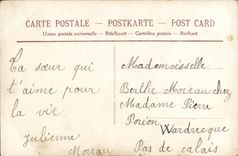 CARTE POSTALE - POSTKARTE - POST CARD
Union postale universelle - Briefkaart - Cartolina postale - Brefkort
La sœur qui
t'aime pour
la vie
Julienne
Moreau
Mademoiselle
Berthe Moreau chez
Madame Pierre
Porion
Wardrecque
Pas de calais